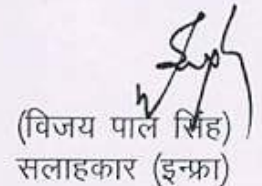 (विजय पाल सिंह)
सलाहकार (इन्फ्रा)